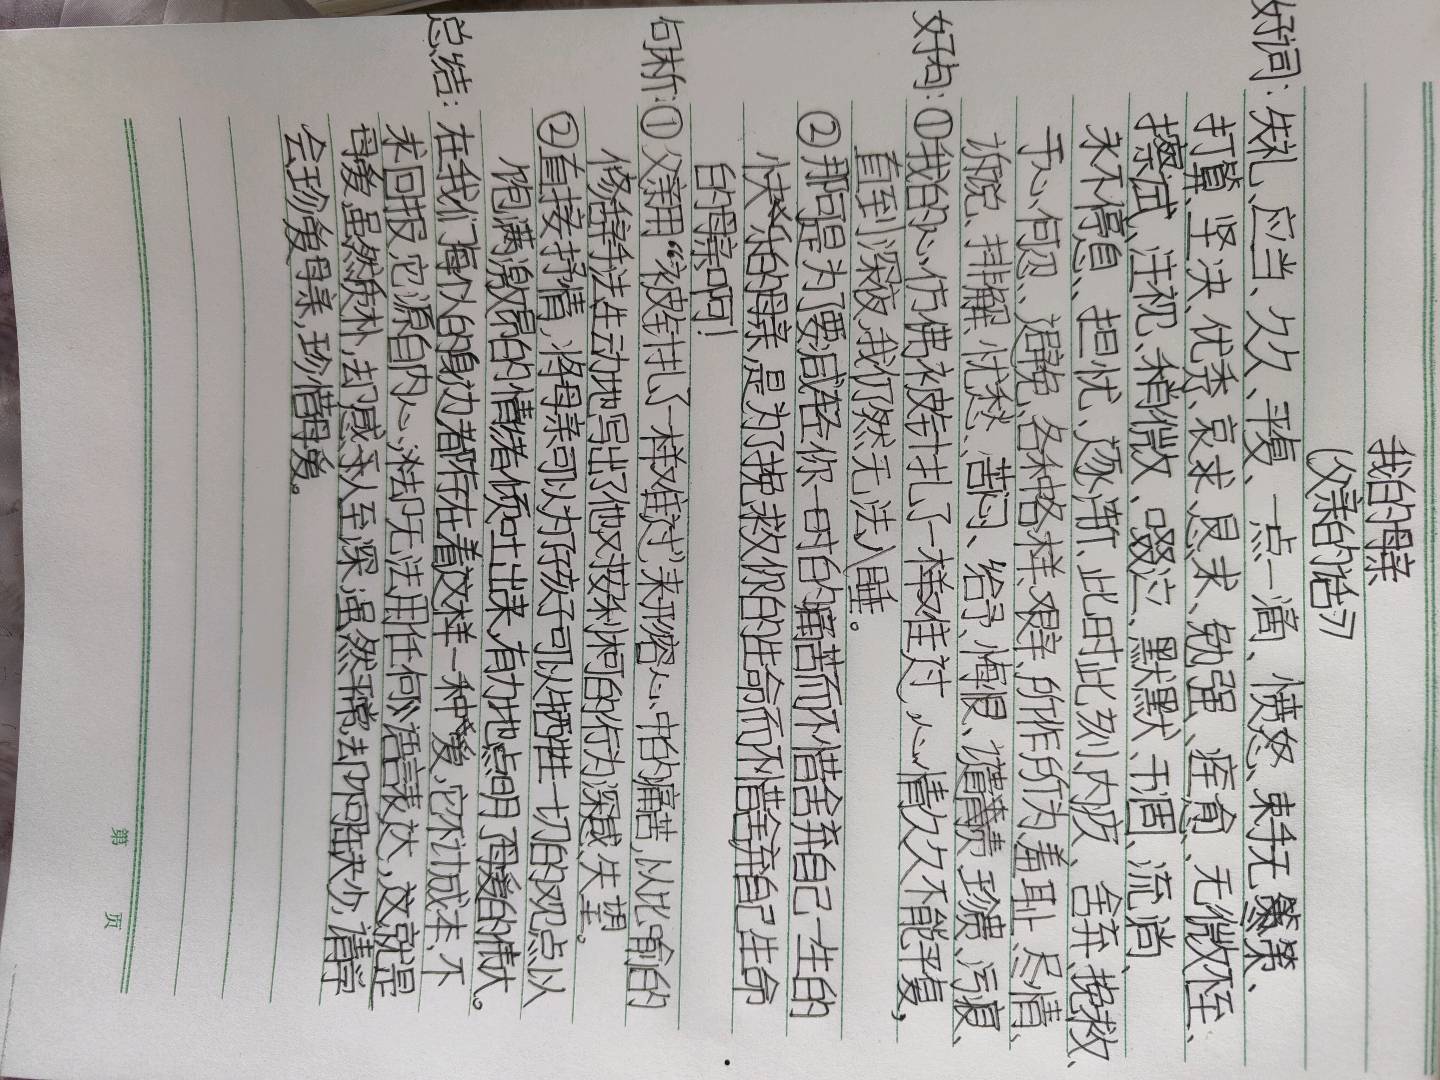 我的母亲
（父亲的话）
好词：失礼、应当、久久、平复、一点一滴、愤怒、束手无策、
打算、坚决、优秀、哀求、恳求、勉强、痊愈、无微不至、
擦拭、注视、稍微、啜泣、默默、干涸、流淌、
永不停息、担忧、逐渐、此时此刻、内疚、舍弃、挽救、
于心何忍、逞强、各种各样、艰辛、所作所为、羞耻、尽情、
诉说、排解、忧愁、苦闷、给予、悔恨、谴责、珍贵、污痕、
好句：①我的心仿佛被针扎了一样难过，心情久久不能平复，
直到深夜，我仍然无法入睡。
②那可是为了要减轻你一时的痛苦而不惜舍弃自己一生的
快乐的母亲，是为了挽救你的生命而不惜舍弃自己生命
的母亲呵！
句析：①父亲用“被针扎了一样难过”来形容心中的痛苦，从比喻的
修辞手法生动地写出了他对安利柯的行为深感失望。
②直接抒情，将母亲可以为了孩子可以牺牲一切的观点从
饱满激昂的情绪倾吐出来，有力地点明了母爱的伟大。
总结：在我们每个人的身边都存在着这样一种“爱”，它不计成本，不
求回报，它源自内心，你却无法用任何语言表达，这就是
母爱，虽然质朴，却感人至深；虽然平常，却不可缺少，请学
会珍爱母亲，珍惜母爱。
第 页